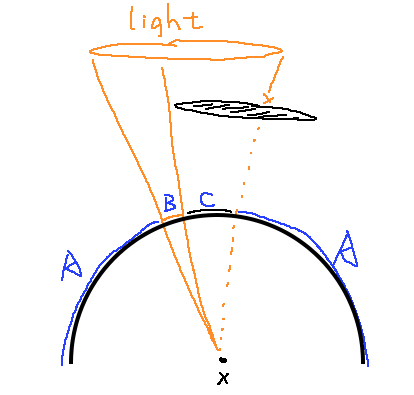 light
B C
A A
x